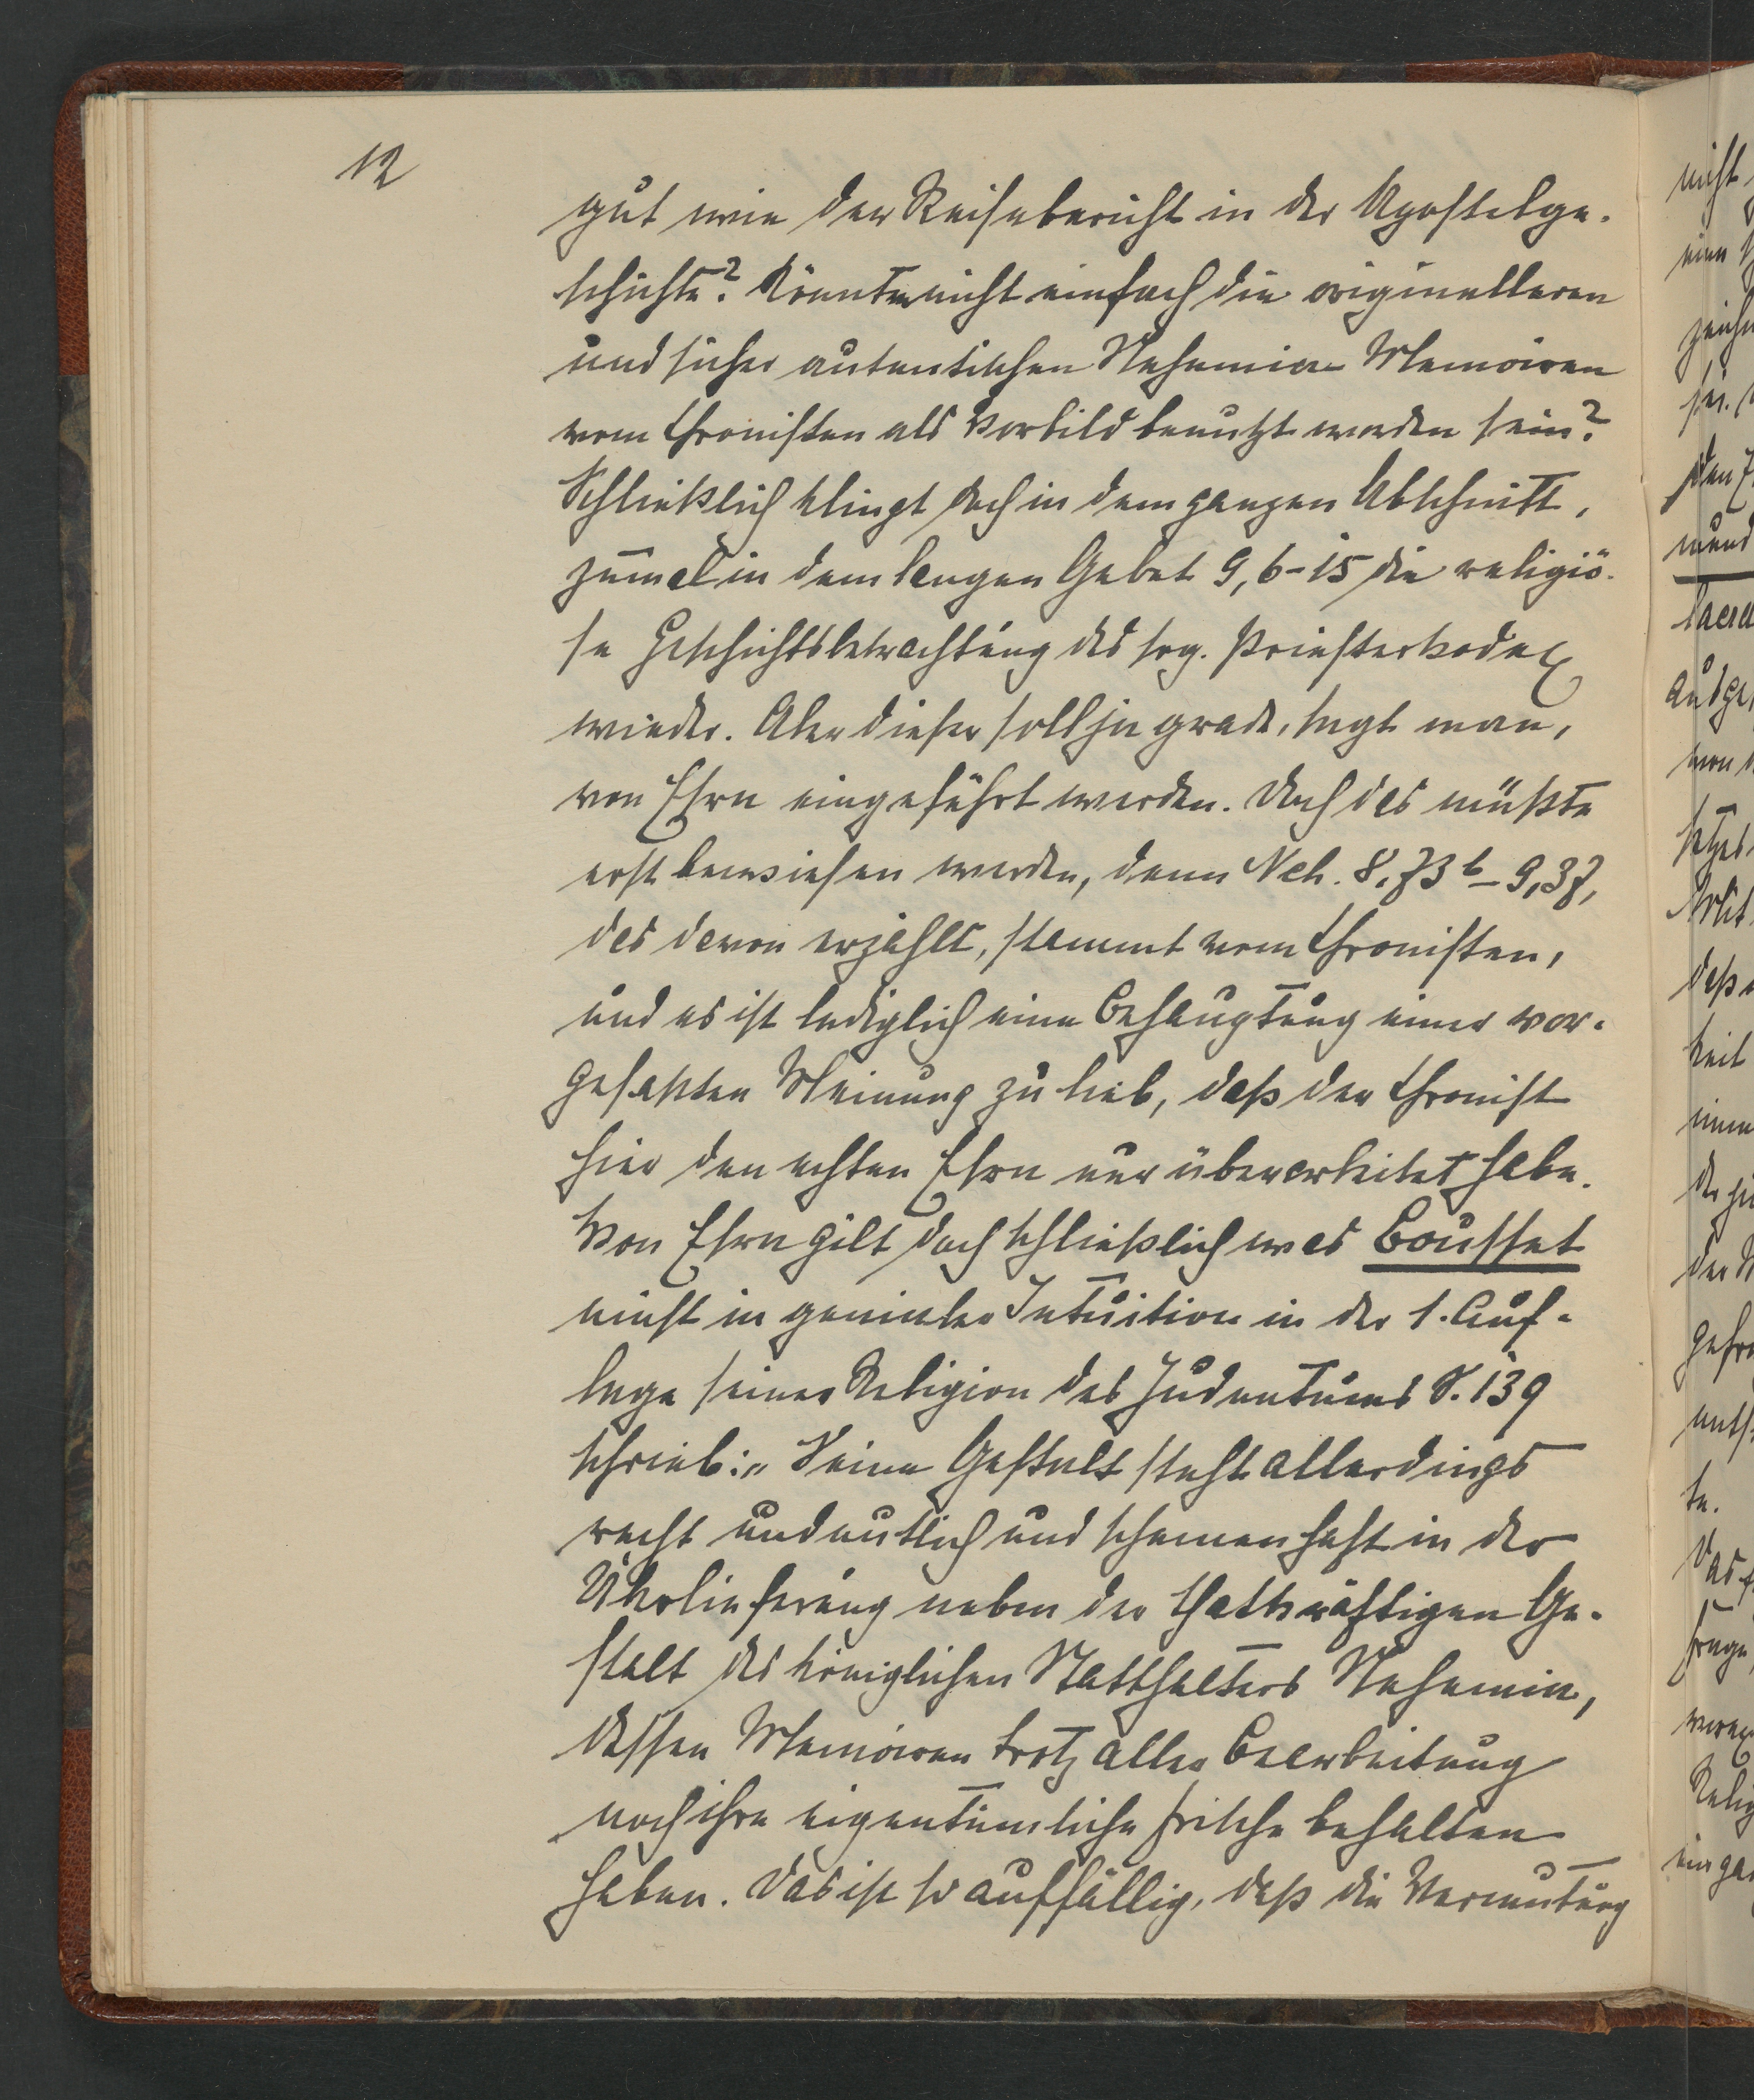 12
gut wie der Reisebericht in der Apostelge-
schichte? Könnten nicht einfach die originelleren
und sicher autentischen Nehemia-Memoiren
vom Chronisten als Vorbild benutzt worden sein?
Schließlich klingt doch in dem ganzen Abschnitt,
zumal in dem langen Gebet 9, 6-15 die religiö-
se Geschichtsbetrachtung des sog. Priesterkodex
wieder. Aber dieser soll ja grade, sagt man,
von Esra eingeführt werden. Doch das müßte
erst bewiesen werden, denn Neh. 8,73b-9,37,
das davon erzählt, stammt vom Chronisten,
und es ist lediglich eine Behauptung einer vor-
gefaßten Meinung zu lieb, daß der Chronist
hier den echten Esra nur überarbeitet habe.
Von Esra gilt doch schließlich was Bousset
einst in genialer Intuition in der 1. Auf-
lage seiner Religion des Judentums S. 139
schrieb: „Seine Gestalt steht allerdings
recht undeutlich und schemenhaft in der
Überlieferung neben der thatkräftigen Ge-
stalt des königlichen Statthalters Nehemia,
dessen Memoiren trotz aller Bearbeitung
noch ihre eigentümliche Frische behalten
haben. Das ist so auffällig, daß die Vermutung
nicht
sei.
mund
ausge
von
daß
keit
der
te.
Das
Frage
ein